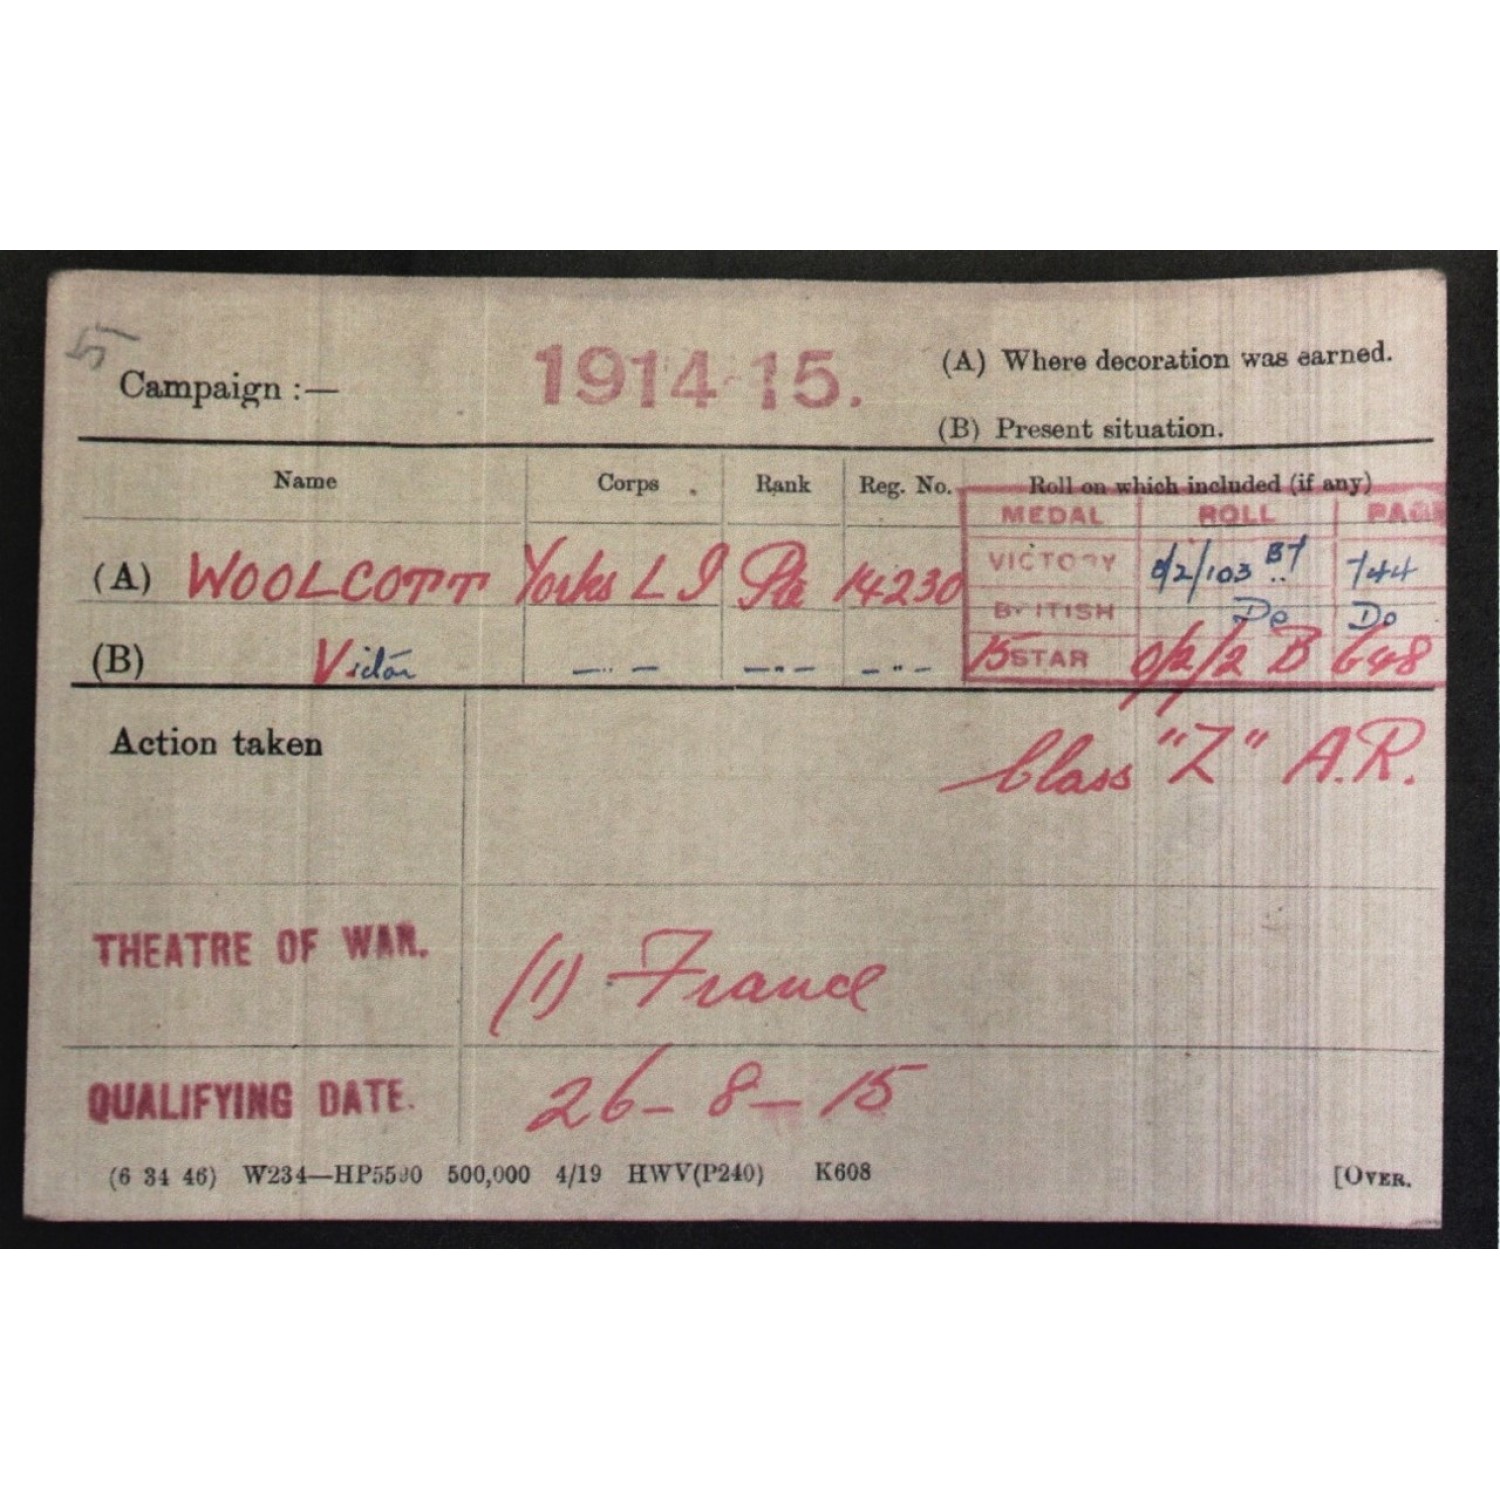 5
Campaign :— 1914-15. (A) Where decoration was earned.
(B) Present situation.
Name Corps Rank Reg. No. Roll on which included (if any)
MEDAL ROLL PAGE
(A) WOOLCOTT Yorks L I Pte 14230 VICTORY O/2/103 B7 744
BRITISH Do Do
(B) Victor —..— —"— —"— 15 STAR O/2/2 B 648
Action taken Class "Z" A.R.
THEATRE OF WAR. (1) France
QUALIFYING DATE. 26-8-15
(6 34 46) W234—HP5590 500,000 4/19 HWV(P240) K608 [OVER.